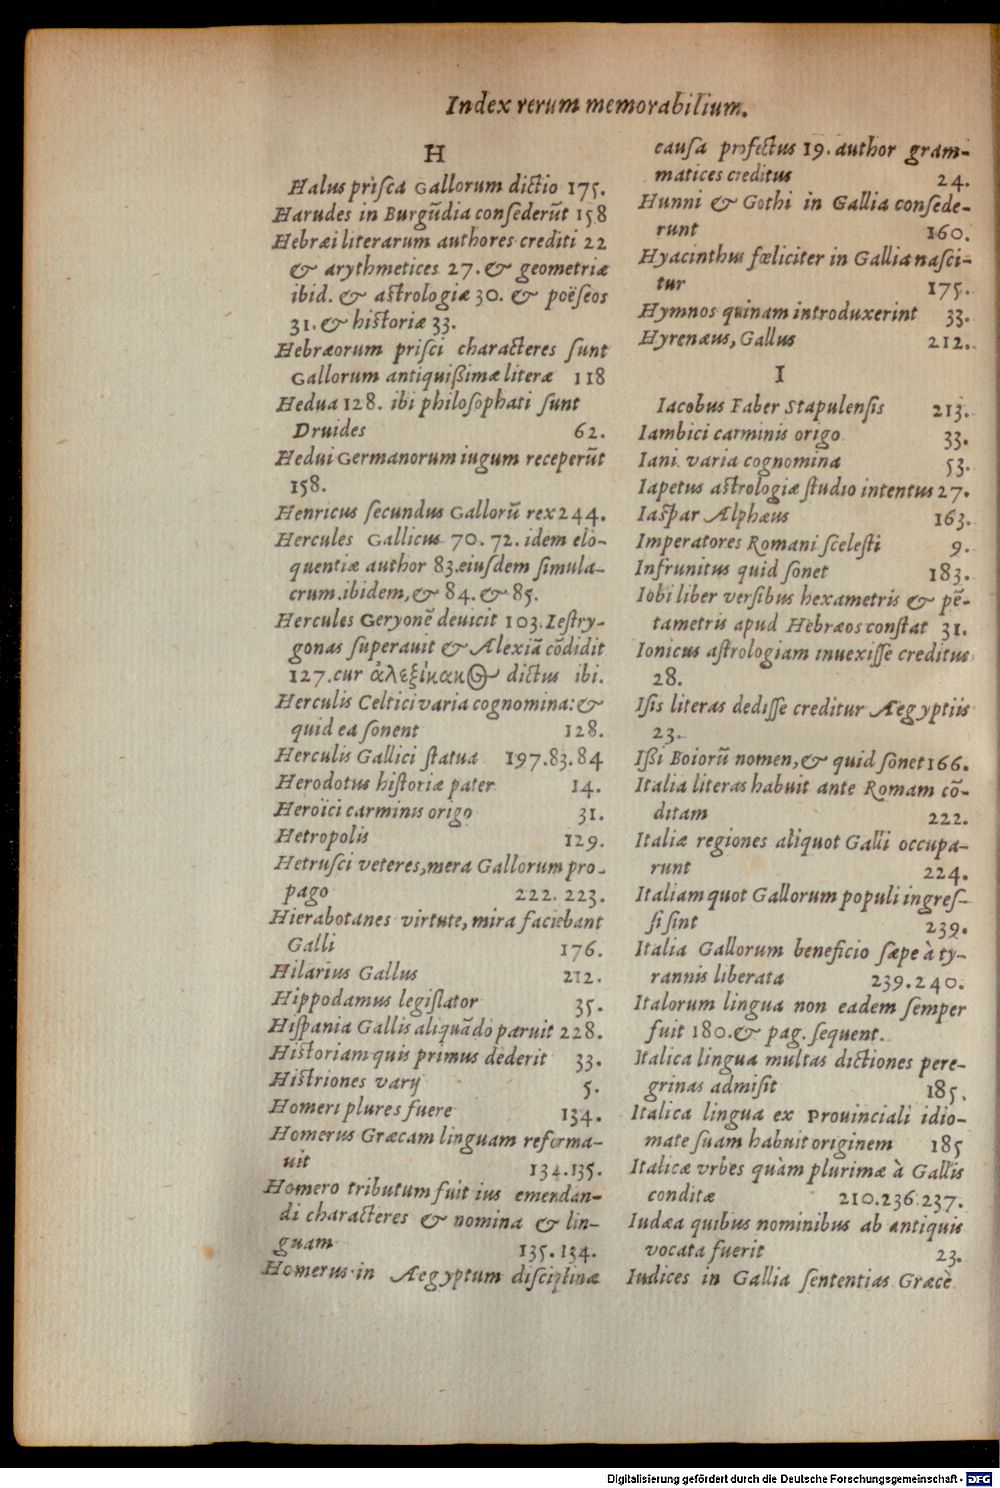 Index rerum memorabilium.
H
Halus prisca Gallorum dictio 175.
Harudes in Burgūdia consederūt 158
Hebræi literarum authores crediti 22
& arythmetices 27. & geometriæ
ibid. & astrologiæ 30. & poëseos
31. & historiæ 33.
Hebræorum prisci characteres sunt
Gallorum antiquißimæ literæ 118
Hedua 128. ibi philosophati sunt
Druides 62.
Hedui Germanorum iugum receperūt
158.
Henricus secundus Gallorū rex 244.
Hercules Gallicus 70. 72. idem elo-
quentiæ author 83. eiusdem simula-
crum. ibidem, & 84. & 85.
Hercules Geryonē deuicit 103. Lestry-
gonas superauit & Alexiā cōdidit
127. cur ἀλεξίκακος dictus ibi.
Herculis Celtici varia cognomina: &
quid ea sonent 128.
Herculis Gallici statua 197. 83. 84
Herodotus historiæ pater 14.
Heroici carminis origo 31.
Hetropolis 129.
Hetrusci veteres, mera Gallorum pro-
pago 222. 223.
Hierabotanes virtute, mira faciebant
Galli 176.
Hilarius Gallus 212.
Hippodamus legislator 35.
Hispania Gallis aliquādo paruit 228.
Historiam quis primus dederit 33.
Histriones varij 5.
Homeri plures fuere 134.
Homerus Græcam linguam reforma-
uit 134. 135.
Homero tributum fuit ius emendan-
di characteres & nomina & lin-
guam 135. 134.
Homerus in Ægyptum disciplinæ
causa profectus 19. author gram-
matices creditus 24.
Hunni & Gothi in Gallia consede-
runt 160.
Hyacinthus fœliciter in Gallia nasci-
tur 175.
Hymnos quinam introduxerint 33.
Hyrenæus, Gallus 212.
I
Iacobus Faber Stapulensis 213.
Iambici carminis origo 33.
Iani varia cognomina 53.
Iapetus astrologiæ studio intentus 27.
Iaspar Alphæus 163.
Imperatores Romani scelesti 9.
Infrunitus quid sonet 183.
Iobi liber versibus hexametris & pē-
tametris apud Hebræos constat 31.
Ionicus astrologiam inuexisse creditus
28.
Isis literas dedisse creditur Ægyptiis
23.
Ißi Boiorū nomen, & quid sonet 166.
Italia literas habuit ante Romam cō-
ditam 222.
Italiæ regiones aliquot Galli occupa-
runt 224.
Italiam quot Gallorum populi ingres-
si sint 239.
Italia Gallorum beneficio sæpe à ty-
rannis liberata 239. 240.
Italorum lingua non eadem semper
fuit 180. & pag. sequent.
Italica lingua multas dictiones pere-
grinas admisit 185.
Italica lingua ex Prouinciali idio-
mate suam habuit originem 185
Italicæ vrbes quàm plurimæ à Gallis
conditæ 210. 236. 237.
Iudæa quibus nominibus ab antiquis
vocata fuerit 23.
Iudices in Gallia sententias Græcè
Digitalisierung gefördert durch die Deutsche Forschungsgemeinschaft - DFG